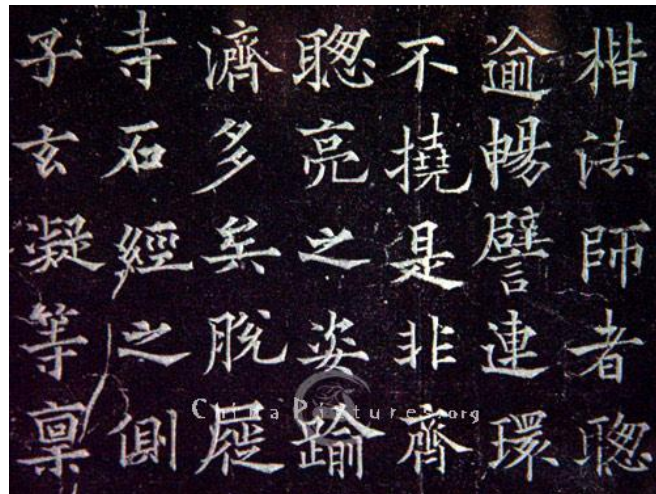 楷法師者聦
逾暢譬連環
不撓是非齊
聦亮之姿踰
濟多矣脫屣
寺石經之側
子玄凝等稟
China Pictures.org